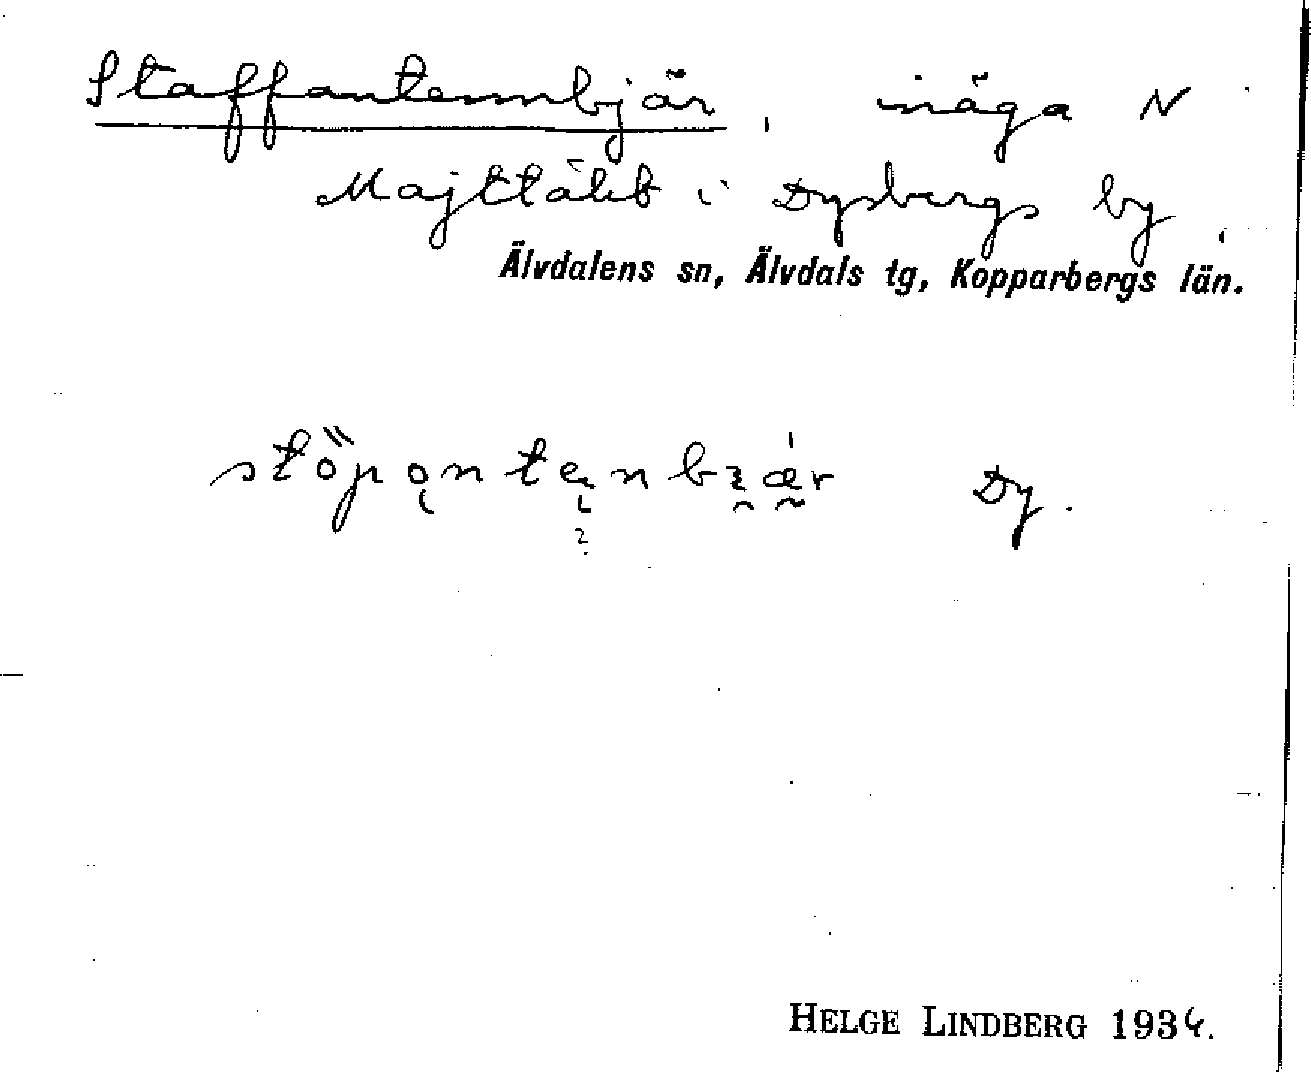 Staffantennbjär, inäga N
Majttäkt i Dysbergs by.
Älvdalens sn, Älvdals tg, Kopparbergs län.
Dy.
HELGE LINDBERG 1934.